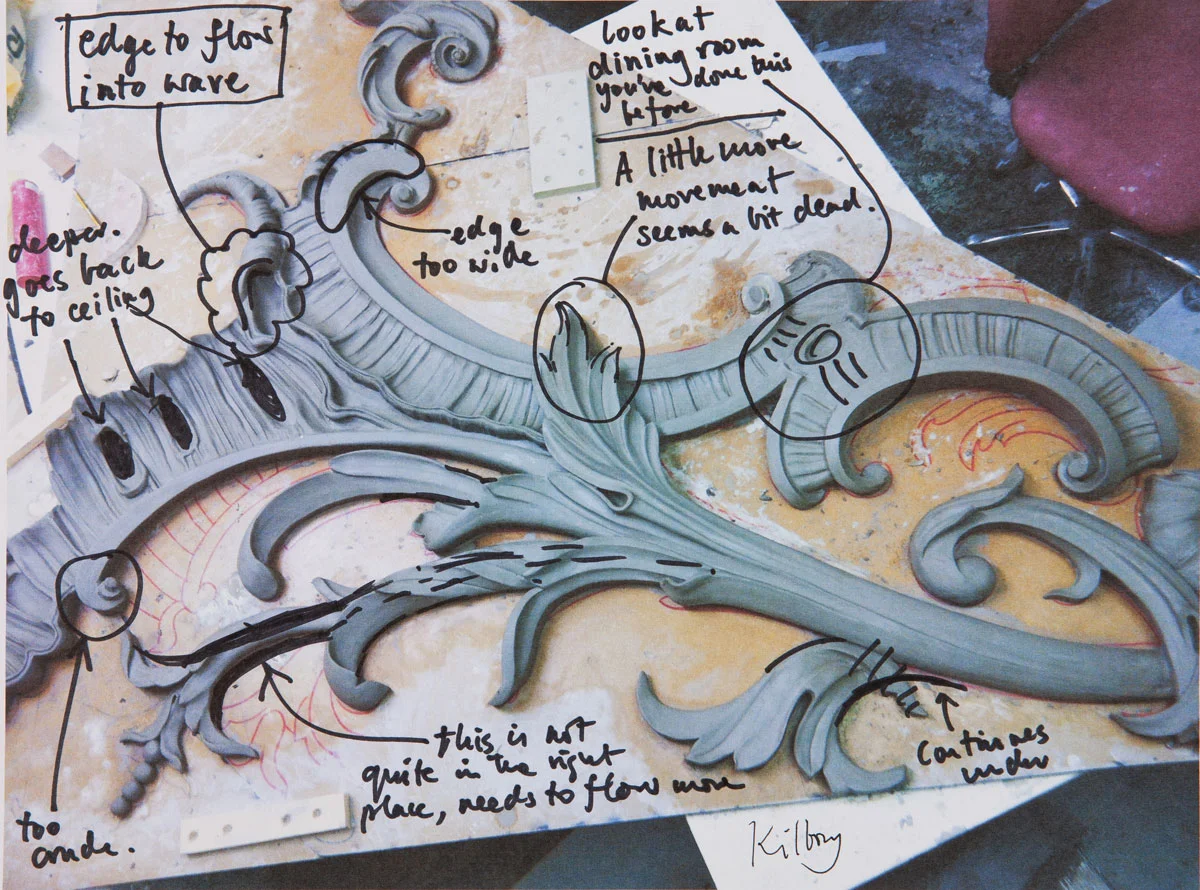 edge to flow
into wave
look at
dining room
you've done this
before
A little more
movement
seems a bit dead.
edge
too wide
deeper.
goes back
to ceiling
this is not
quite in the right
place, needs to flow more
continues
under
too
crude.